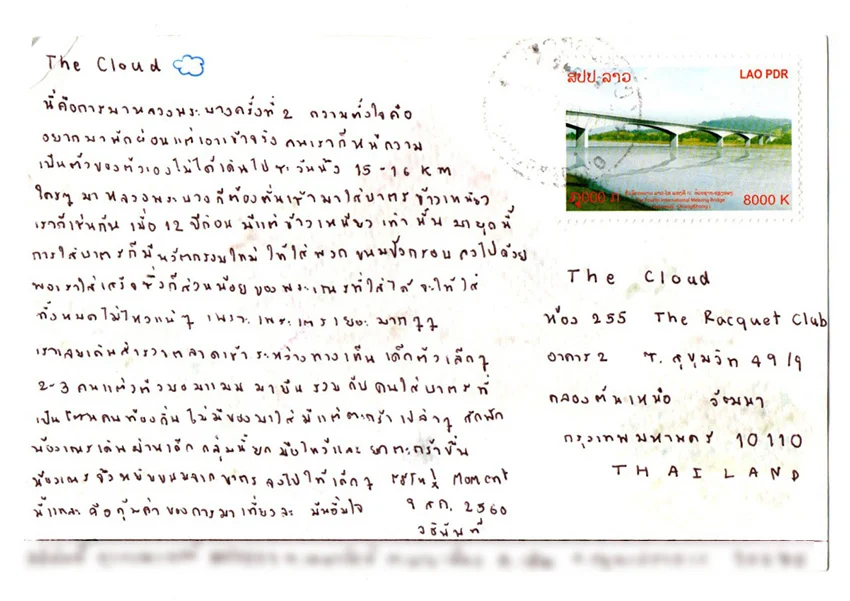 The Cloud
นี่คือการมาหลวงพระบางครั้งที่ 2 ความตั้งใจคือ
อยากมาพักผ่อนแต่เอาเข้าจริง คนเราก็หนีความ
เป็นตัวของตัวเองไม่ได้เดินไป ๆ วันนั้ง 15-16 KM
ใครๆ มาหลวงพระบางก็ต้องตื่นเช้ามาใส่บาตร ข้าวเหนียว
เราก็เช่นกัน เมื่อ 12 ปีก่อน มีแต่ข้าวเหนียว เท่านั้น มายุคนี้
การใส่บาตรก็มีนวัตกรรมใหม่ ให้ใส่พวก ขนมปังกรอบ ลงไปด้วย
พอเราใส่เสร็จ ซึ่งก็ส่วนน้อย ของพระเณรที่ใส่ได้ จะให้ใส่
ทั้งหมดไม่ไหวแน่ๆ เพราะ เยอะ มากๆๆ
เราเลยเดินสำรวจตลาดเช้า ระหว่างทางเห็น เด็กตัวเล็กๆ
2-3 คนแต่งตัวมอมแมม มายืน รวม กับ คนใส่บาตร ที่
เป็น คนท้องถิ่น ไม่มีของมาใส่ มีแต่ตะกร้า เปล่าๆ สักพัก
น้องเณรเดินผ่านเด็ก กลุ่มนี้ยก มือไหว้และ ยกตะกร้าขึ้น
น้องเณร จึง หยิบขนมจาก บาตร ลงไปให้เด็กๆ Moment
นี้แหละ คือคุ้มค่า ของการมาเที่ยวละ มันอิ่มใจ
9 ธค. 2560
วชินันท์
ສປປ ລາວ
LAO PDR
8000 K
The Cloud
ห้อง 255 The Racquet Club
อาคาร 2 ซ. สุขุมวิท 49/9
คลองตันเหนือ วัฒนา
กรุงเทพมหานคร 10110
THAILAND